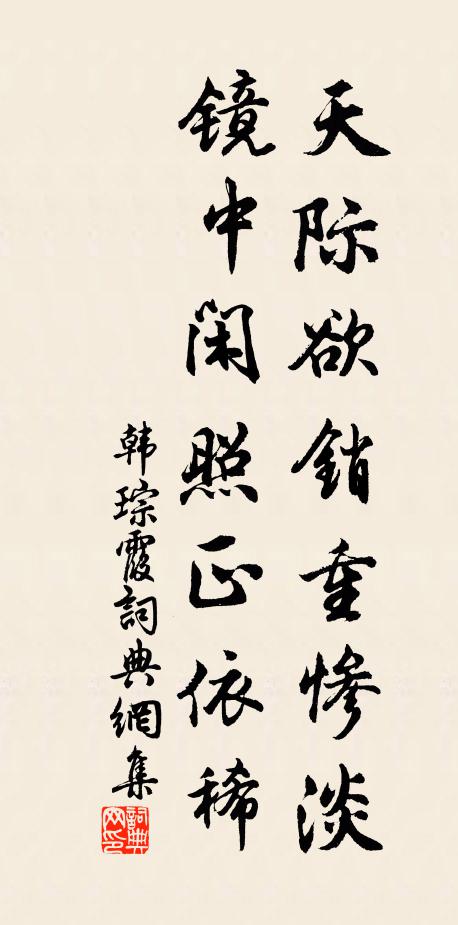 天际欲銷重惨淡
镜中闲照正依稀
韩琮霞詞典網集
詞典网印